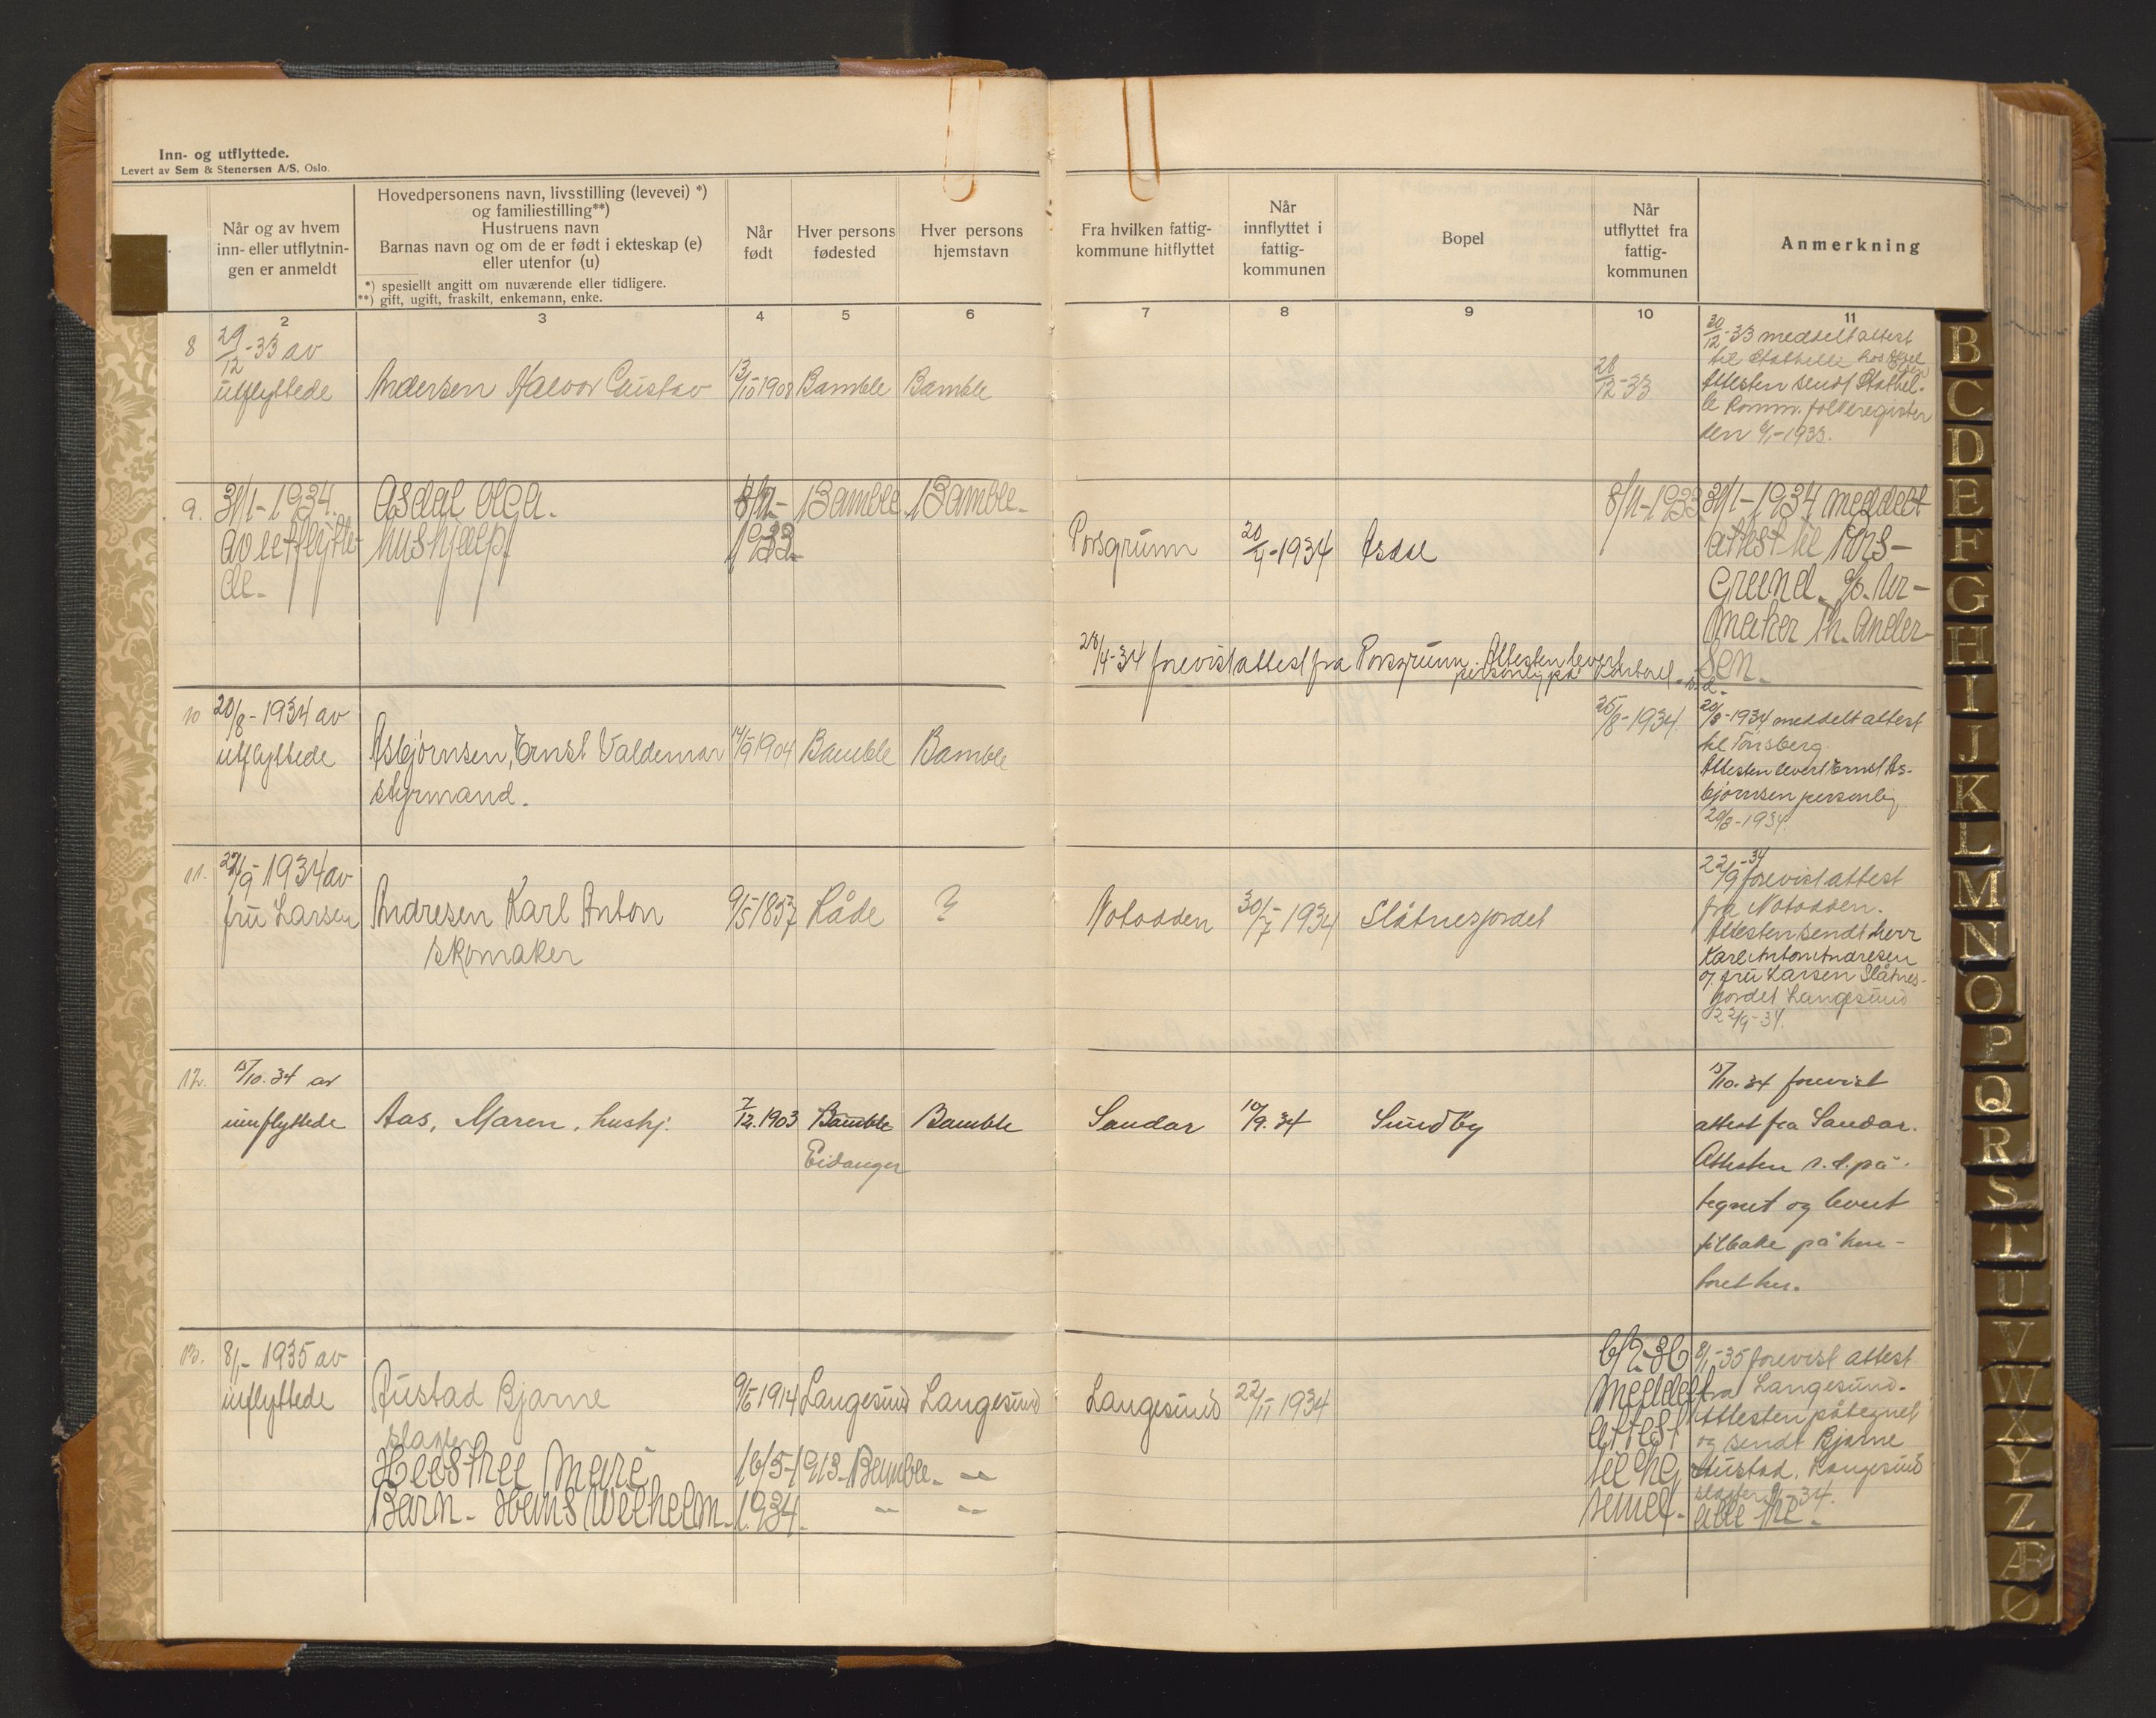 Inn- og utflyttede.
Levert av Sem & Stenersen A/S, Oslo.
Når og av hvem
inn- eller utflytnin-
gen er anmeldt
Hovedpersonens navn, livsstilling (levevei) *)
og familiestilling**)
Hustruens navn
Barnas navn og om de er født i ekteskap (e)
eller utenfor (u)
*) spesiellt angitt om nuværende eller tidligere.
**) gift, ugift, fraskilt, enkemann, enke.
Når
født
Hver persons
fødested
Hver persons
hjemstavn
Fra hvilken fattig-
kommune hitflyttet
Når
innflyttet i
fattig-
kommunen
Bopel
Når
utflyttet fra
fattig-
kommunen
Anmerkning
2 3 4 5 6 7 8 9 10 11
8 29/12-33 av
utflyttede
Andersen Halvor Gustav
13/10 1908 Bamble Bamble
28/12-33
30/12-33 meddelt attest
til Stathelle hos Aksel
Olsen
Attesten sendt Stathel-
le komm. folkeregister
den
9. 31/1-1934.
av utflytte-
de.
Asdal Olga.
hushjælp.
Bamble Bamble.
Porsgrunn 20/4-1934 Asdal
8/11-1933
31/1-1934 meddelt
attest til Pors-
grund. c/o. Ur-
maker Th. Ander-
sen.
28/4-34 forevist attest fra Porsgrunn. Attesten levert
personlig på kontoret s.d.
10 20/8-1934 av
utflyttede
Asbjørnsen, Ernst Valdemar
styrmand.
14/9 1904 Bamble Bamble
25/8-1934.
20/8-1934 meddelt attest
til Tønsberg.
Attesten levert Ernst As-
bjørnsen personlig
20/8-1934.
11. 1934 av
fru Larsen
Andresen Karl Anton
skomaker
9/5 1857 Råde ?
Notodden 30/7 1934 Slåtnesjordet
22/9-34 forevist attest
fra Notodden.
Attesten sendt herr
Karl Anton Andresen
fru Larsen Slåtnes-
jordet Langesund
22/9-34.
12. 15/10.34 av
innflyttede
Aas, Maren, hushj.
7/12.1903 Bamble Bamble
Eidanger
Sandar 10/9.34 Sundby
15/10.34 forevist
attest fra Sandar.
Attesten s.d. på-
tegnet og levert
tilbake på kon-
toret her.
13. 8/1-1935 av
innflyttede
Austad Bjarne
slakter
9/5 1914 Langesund Langesund
Hustru Marie 16/5-1913 Bamble. -"-
Barn. Hans Wilhelm. 1934. -"- -"-
Langesund 22/11 1934
meddelt
attest
8/1-35 forevist attest
fra Langesund.
Attesten påtegnet
og sendt Bjarne
Austad, Langesund
B
C
D
E
F
G
H
I
J
K
L
M
N
O
P
Q
R
S
T
U
V
W
X
Y
Z
Æ
Ø